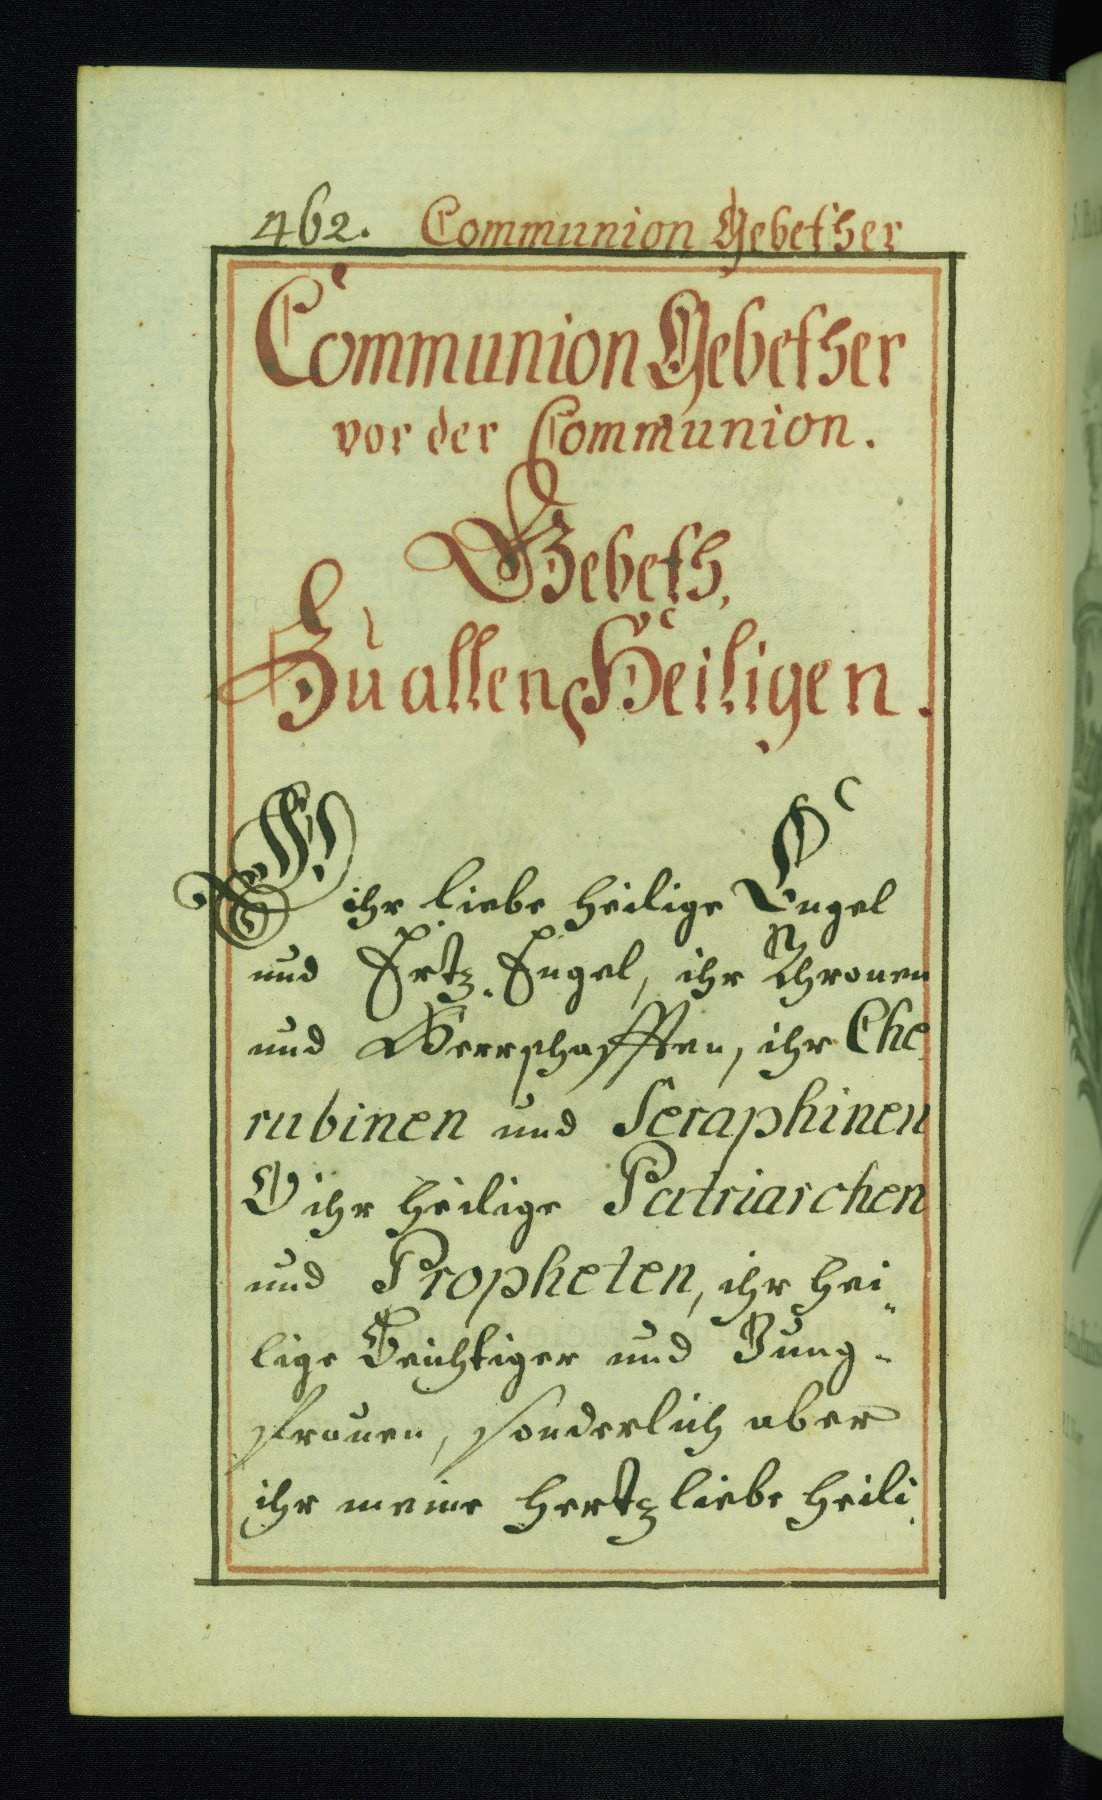 462. Communion Gebether
Communion Gebether
vor der Communion.
Gebeth,
Zu allen Heiligen.
O ihr liebe heilige Engel
und Ertz-Engel, ihr Thronen
und Herrschafften, ihr Che-
rubinen und Seraphinen
O ihr heilige Patriarchen
und Propheten, ihr hei-
lige Beichtiger und Jung-
frauen, sonderlich aber
ihr meine hertzliebe heili-